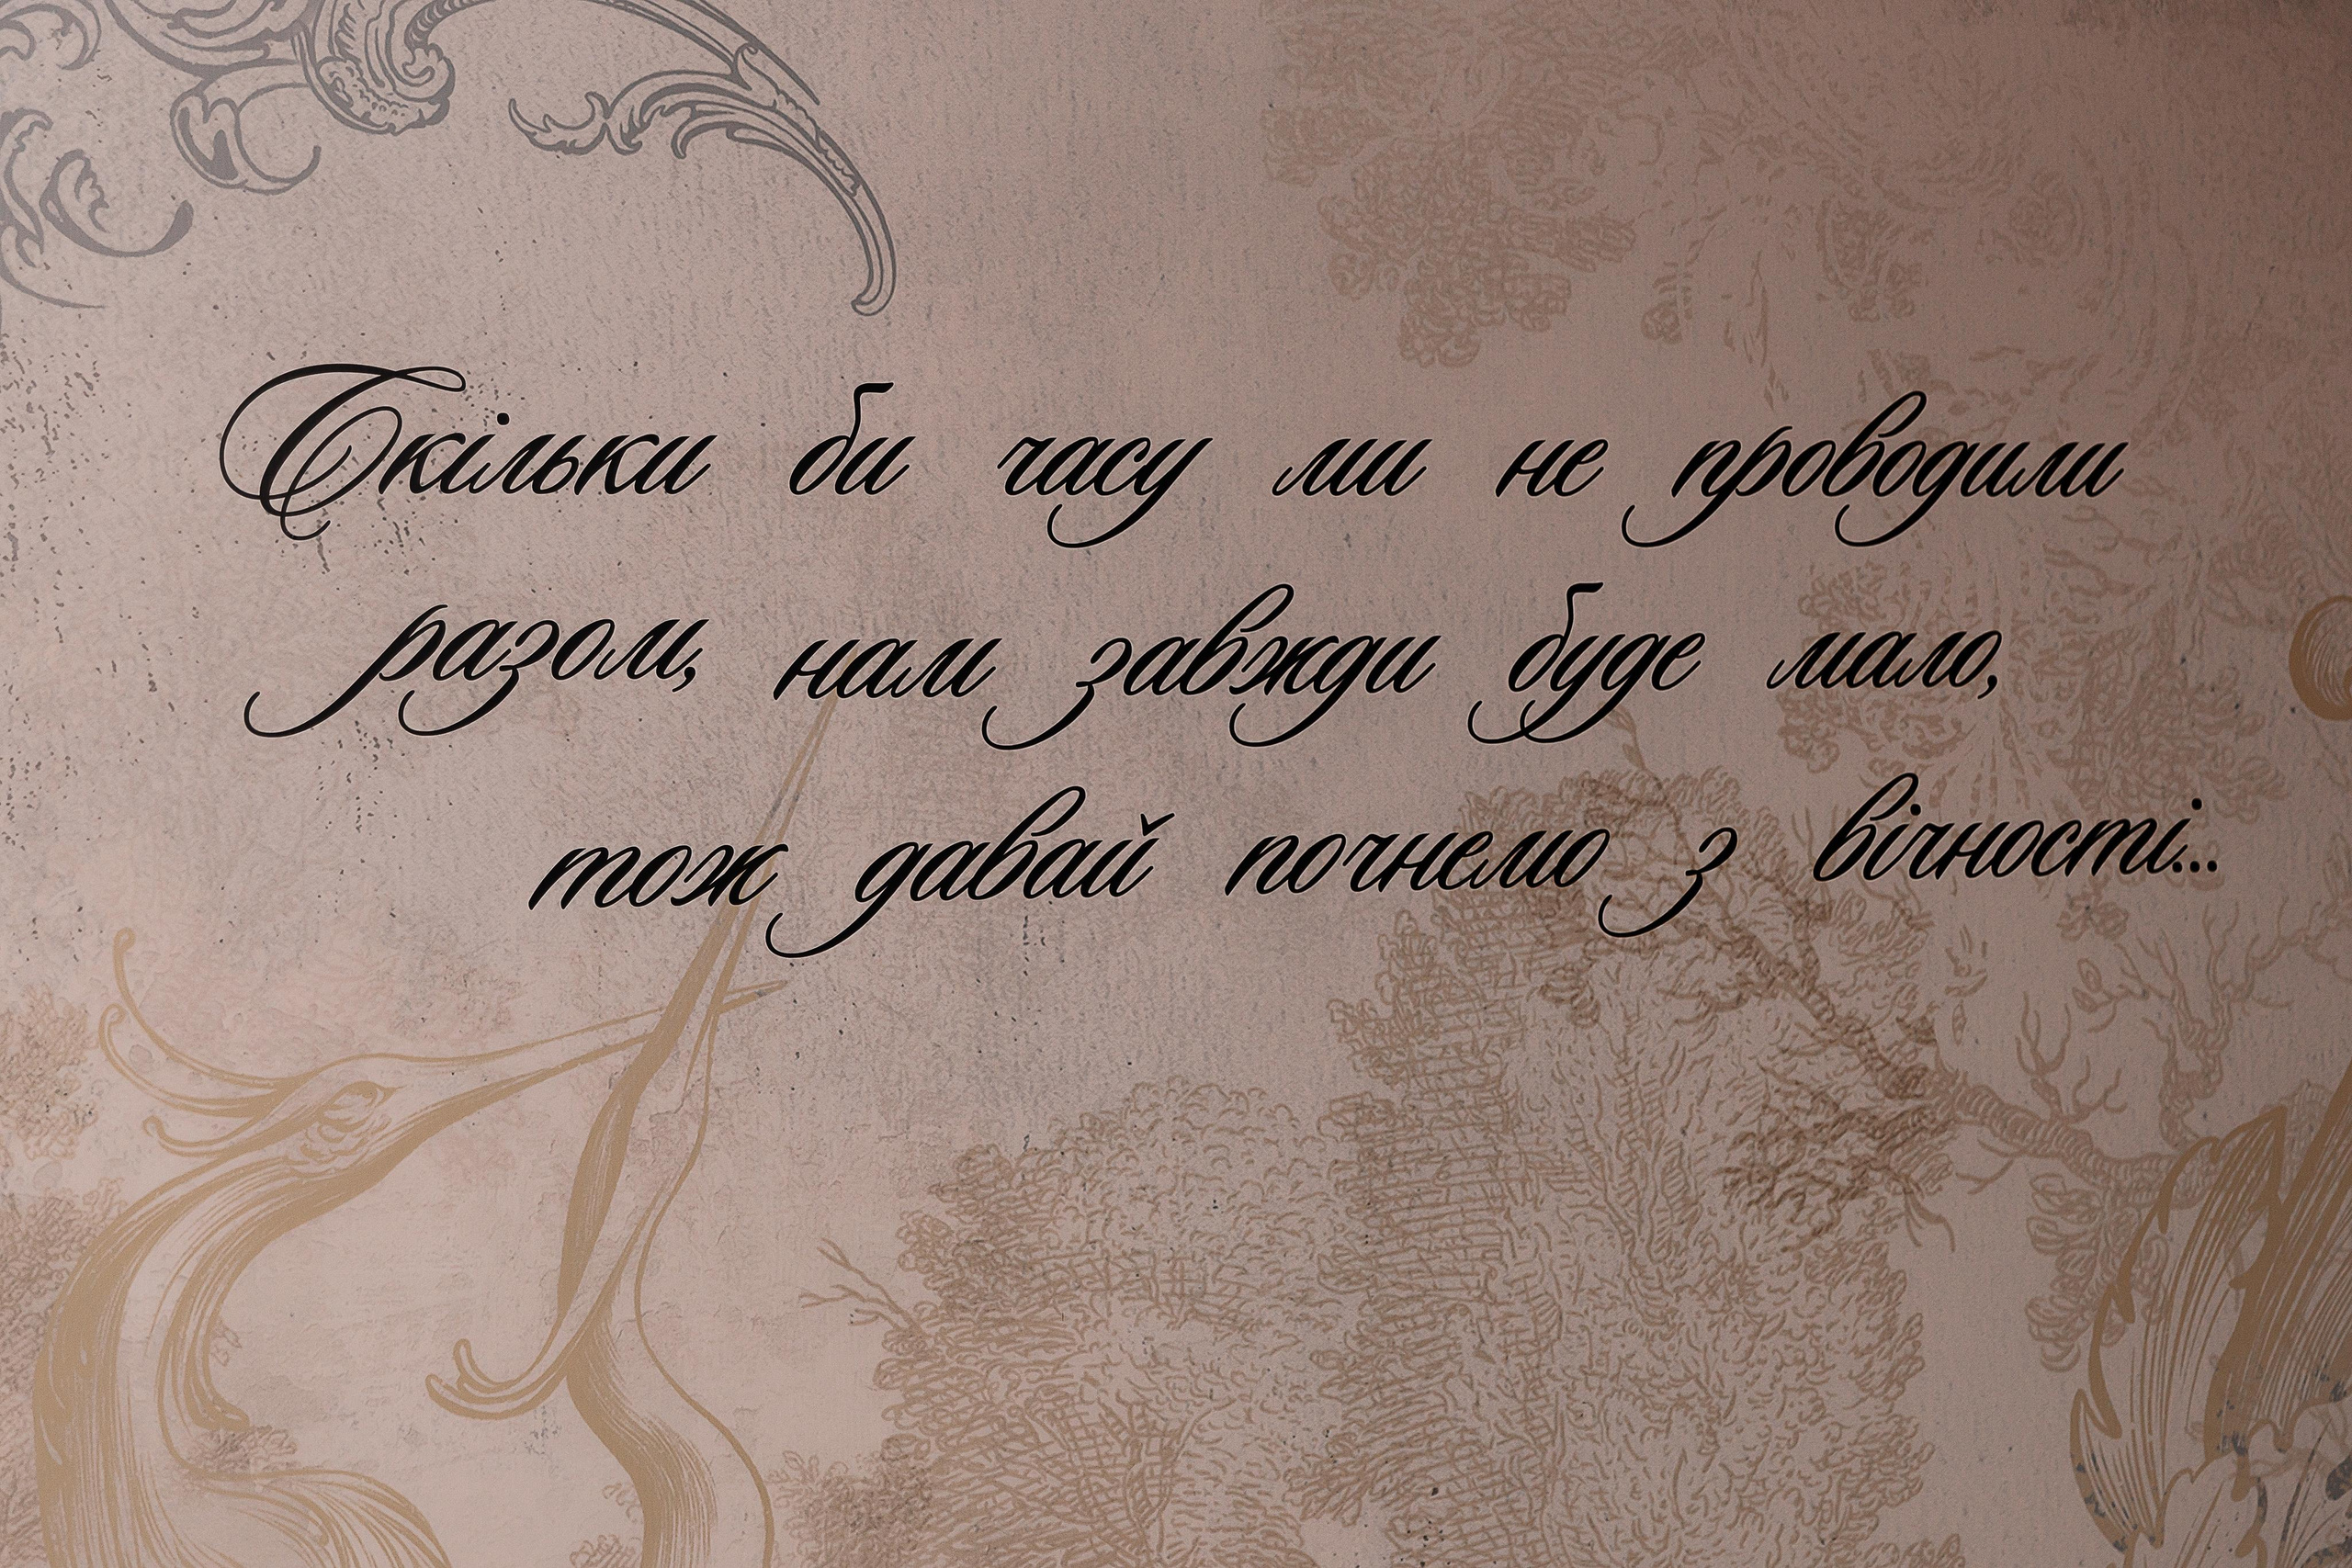 Скільки би часу ми не проводили
разом, нам завжди буде мало,
тож давай почнемо з вічності...